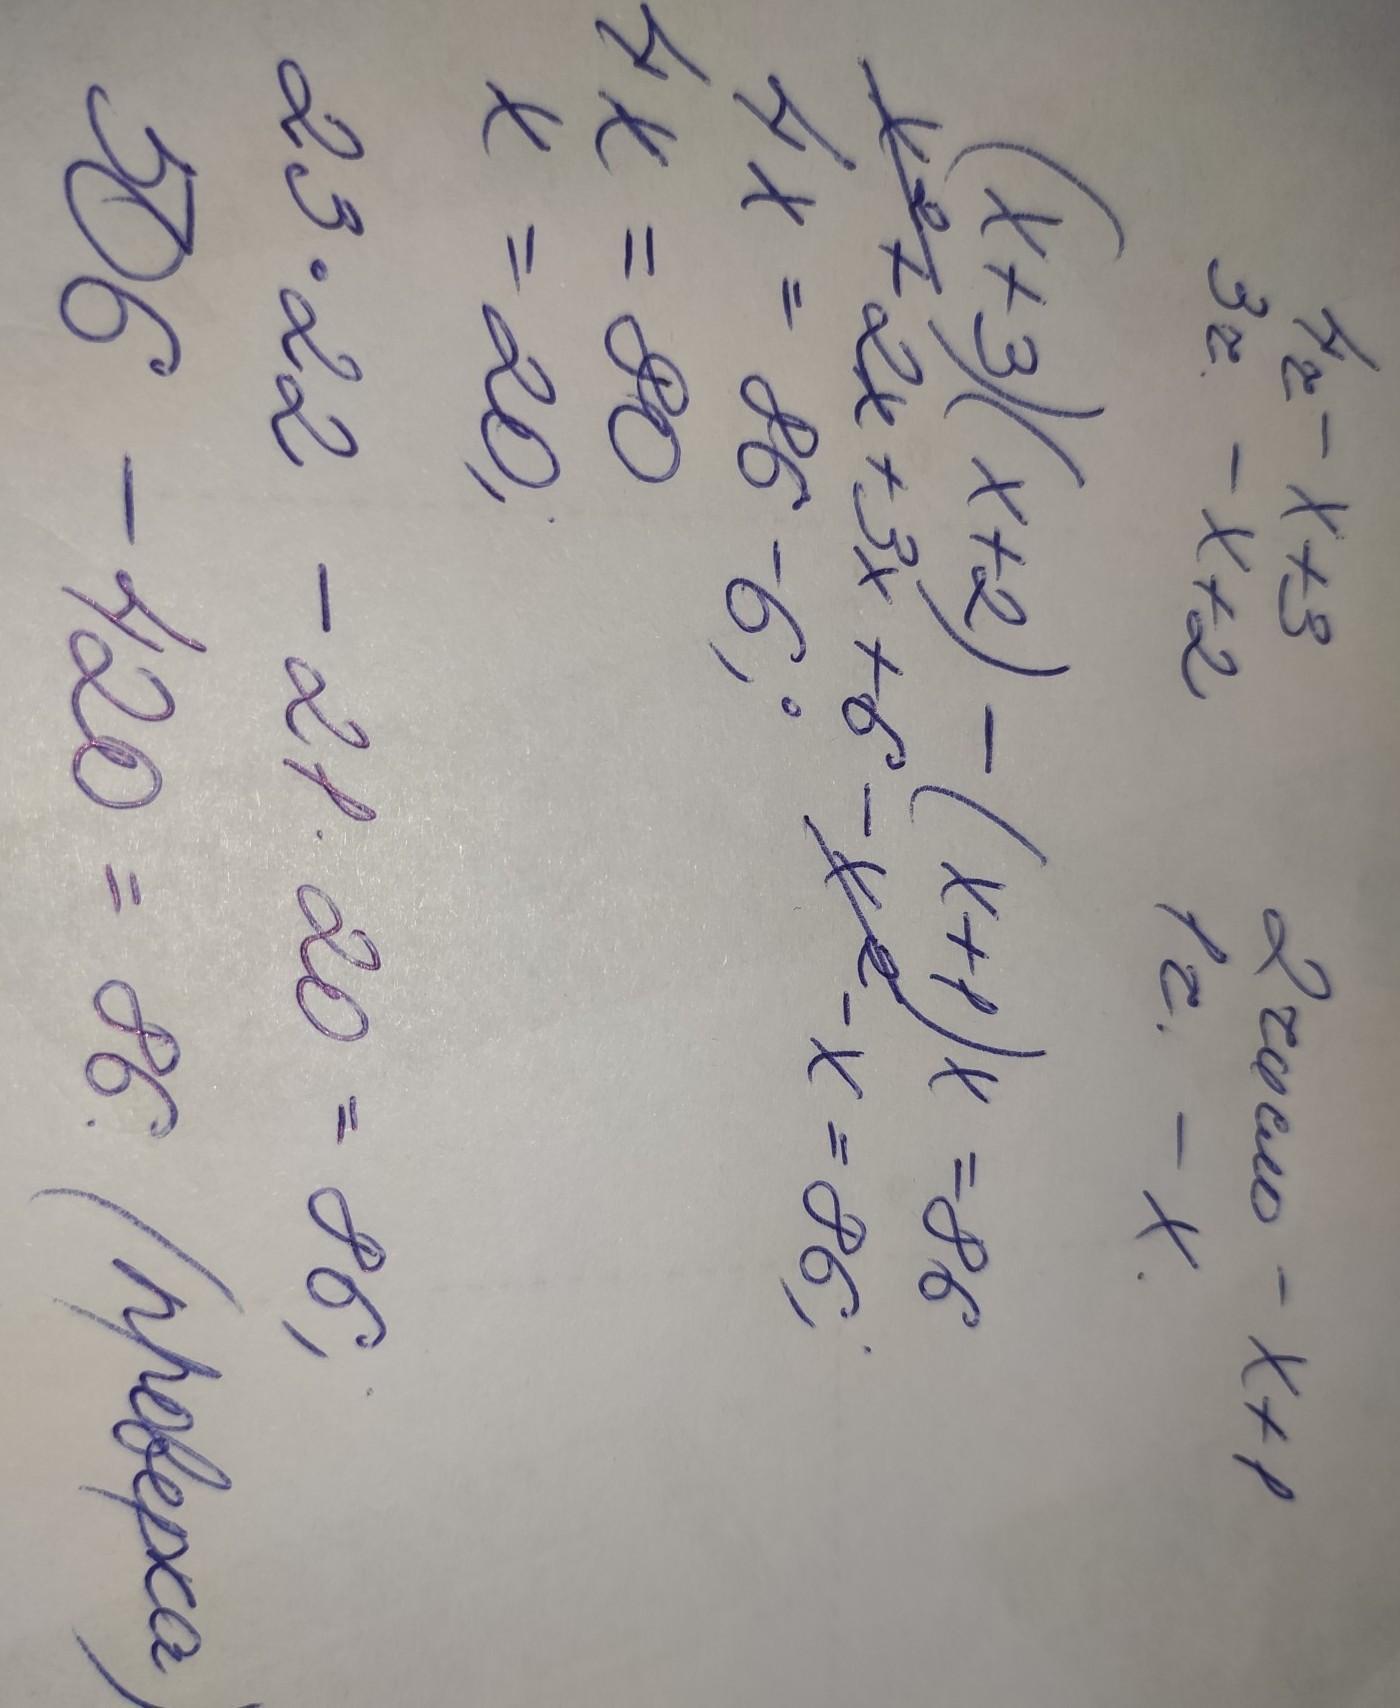 4ч – x+3 2 число – x+1
3ч. – x+2 1ч. – x.
(x+3)(x+2) – (x+1)x = 86
x²+2x+3x+6 – x² – x = 86;
4x = 86 – 6;
4x = 80
x = 20;
23·22 – 21·20 = 86;
506 – 420 = 86. (проверка)